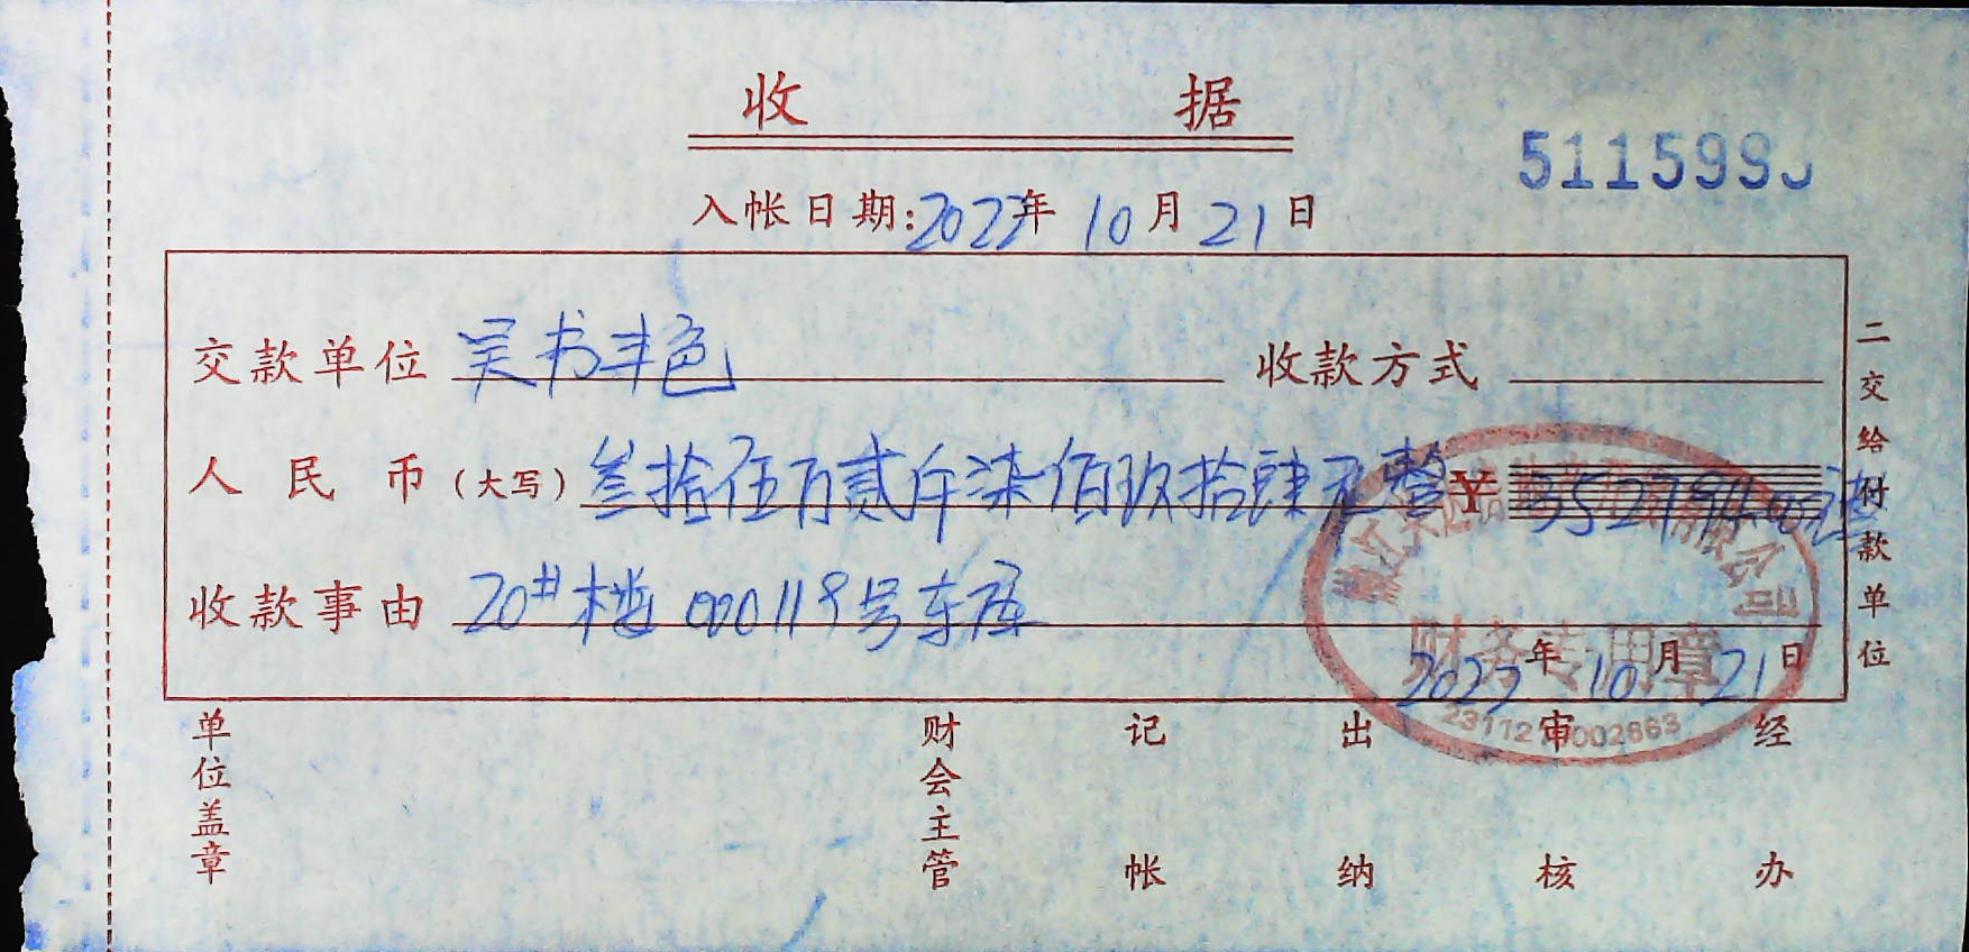 收 据
511599
入帐日期:2022年 10月 21日
交款单位 吴书丰色 收款方式
人民币(大写) 叁拾伍万贰仟柒佰玖拾肆元整 ¥ 352794.00元整
收款事由 20#楼 000119号车库
财务专用章
2022年 10月 21日
2311210002863
二交给付款单位
单位盖章 财会主管 记帐 出纳 审核 经办